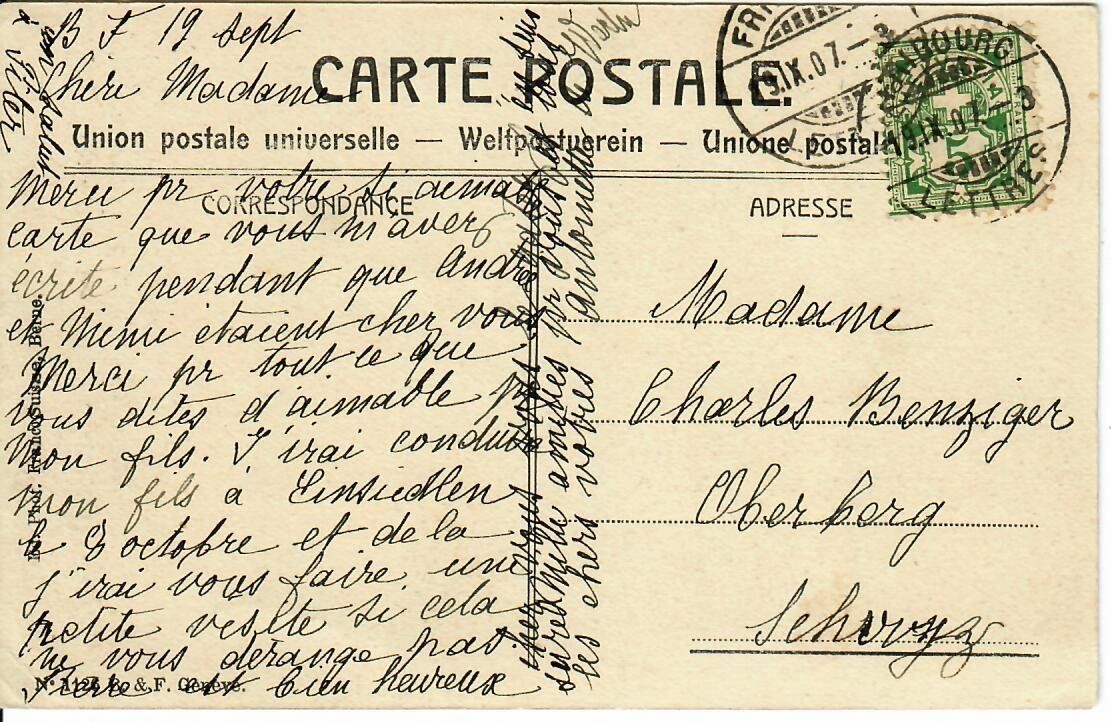 B F 19 sept
Chère Madame
CARTE POSTALE.
Union postale universelle — Weltpostverein — Unione postale
CORRESPONDANCE
Merci pr votre si aimable
carte que vous m'avez
écrite pendant que André
et Mimi étaient chez vous
Merci pr tout ce que
vous dites d'aimable pr
mon fils. J'irai conduire
mon fils à Einsiedlen
le 8 octobre et de là
j'irai vous faire une
petite visite si cela
ne vous dérange pas.
Pierre est bien heureux
chez vous
mille amitiés pr vous
les chers vôtres Antoinette
un salut
à Victor
ADRESSE
Madame
Charles Benziger
Oberberg
Schwyz
FRIBOURG
19.IX.07.–8
LETTRES
5
Phot. Franco-Suisse, Berne.
& F. Genève.